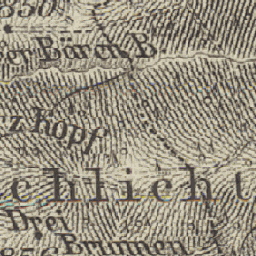 850
er Bärch B
z Kopf
chlicht
Drei
Brunnen
850